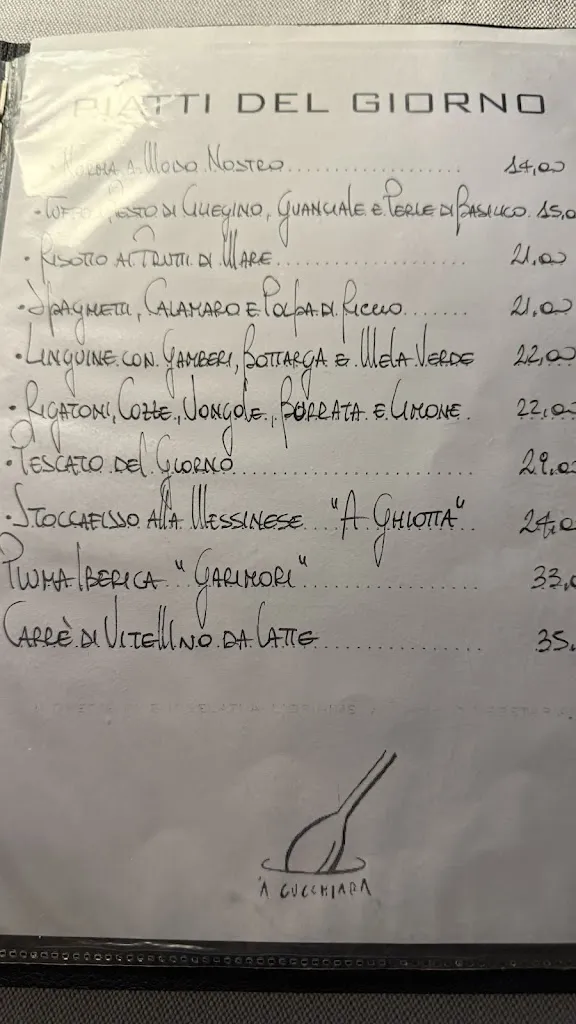 PIATTI DEL GIORNO
• NORMA A MODO NOSTRO 14,00
• PESTO DI CILIEGINO, GUANCIALE E PERLE DI BASILICO. 15,0
• RISOTTO AI FRUTTI DI MARE 21,00
• SPAGHETTI, CALAMARO E POLPA DI RICCIO 21,00
• LINGUINE CON GAMBERI, BOTTARGA E MELA VERDE 22,00
• RIGATONI, COZZE, VONGOLE, BURRATA E LIMONE 22,00
• PESCATO DEL GIORNO 29,0
• STOCCAFISSO ALLA MESSINESE "A GHIOTTA" 24,0
PLUMA IBERICA "GARIMORI" 33,
CARRÈ DI VITELLINO DA LATTE 35,
'A CUCCHIARA